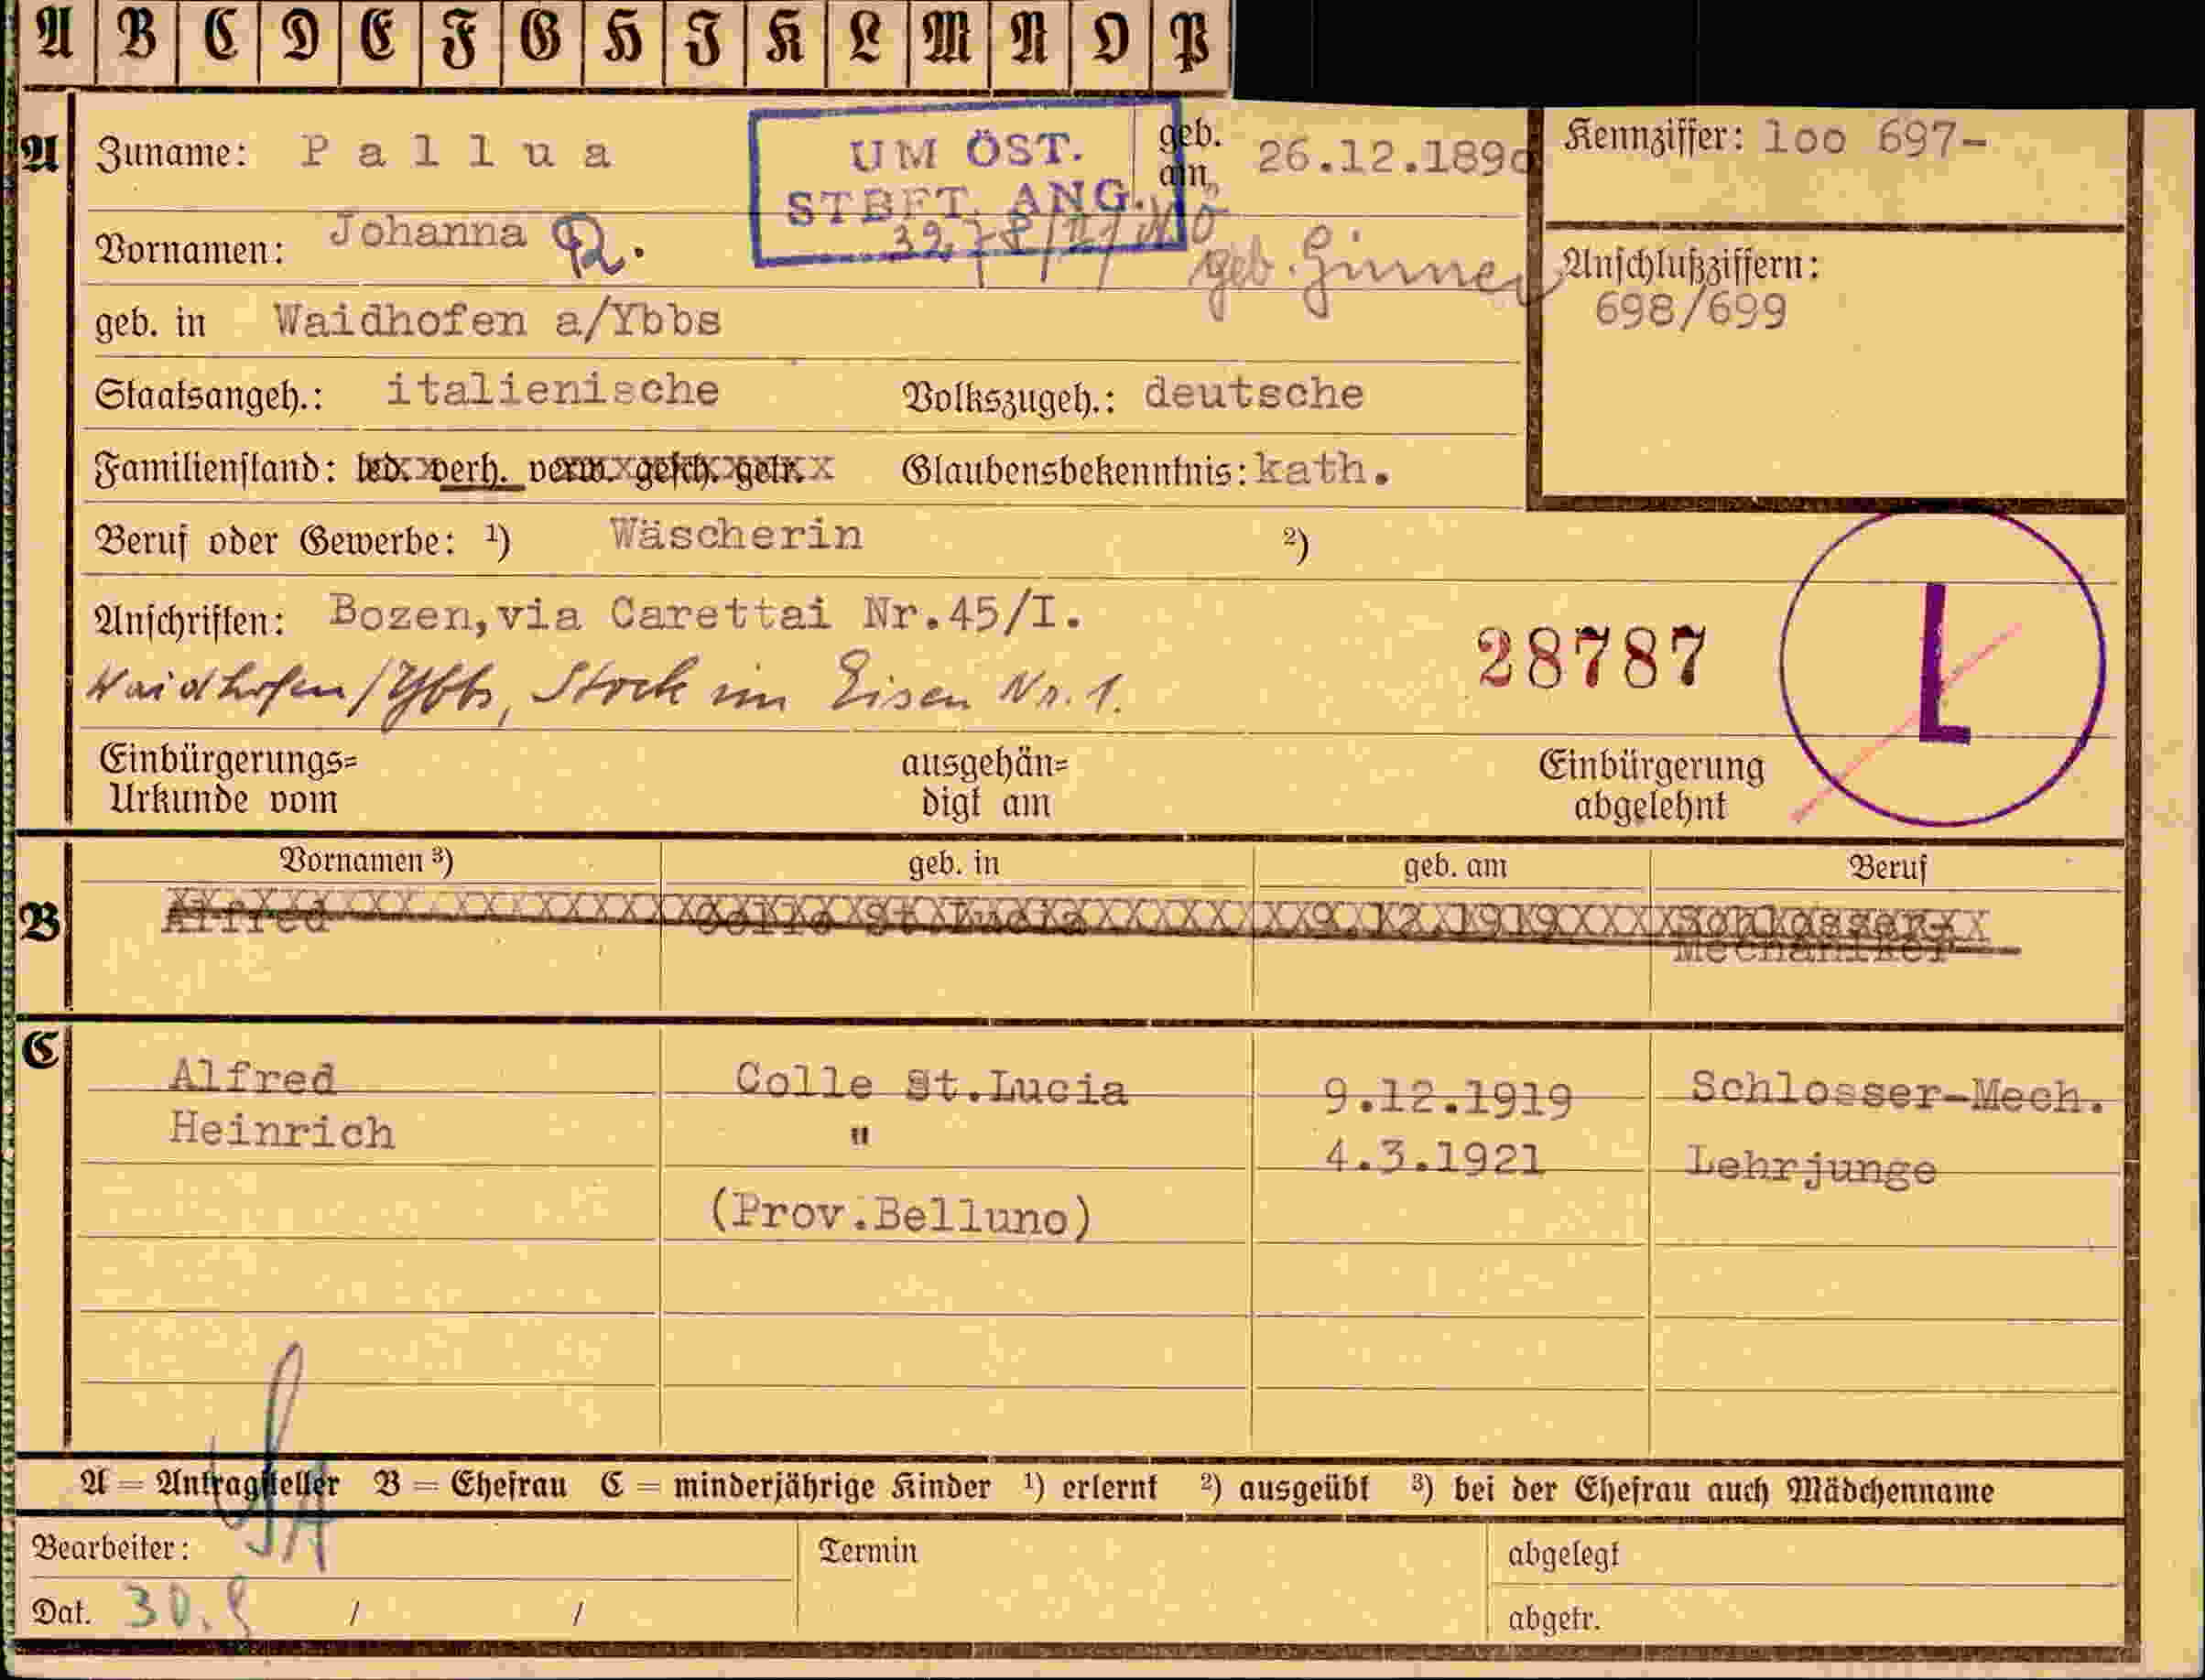 A B C D E F G H I K L M N O P
A Zuname: Pallua geb. am 26.12.1890 Kennziffer: loo 697-
UM ÖST.
STBFT. ANG.
Vornamen: Johanna
geb. Anschlußziffern:
698/699
geb. in Waidhofen a/Ybbs
Staatsangeh.: italienische Volkszugeh.: deutsche
Familienstand: led. verh. verw. gesch. getr. Glaubensbekenntnis: kath.
Beruf oder Gewerbe: ¹) Wäscherin ²)
Anschriften: Bozen,via Carettai Nr.45/I.
28787 L
Waidhofen/Ybbs, Stock im Eisen Nr. 1.
Einbürgerungs= ausgehän= Einbürgerung
Urkunde vom digt am abgelehnt
Vornamen ³) geb. in geb. am Beruf
B Alfred Colle St.Lucia 9.12.1919 Schlosser-
Mechaniker
C
Alfred Colle St.Lucia 9.12.1919 Schlosser-Mech.
Heinrich " 4.3.1921 Lehrjunge
(Prov.Belluno)
A = Antragsteller B = Ehefrau C = minderjährige Kinder ¹) erlernt ²) ausgeübt ³) bei der Ehefrau auch Mädchenname
Bearbeiter: Termin abgelegt
Dat. 30. / / abgetr.